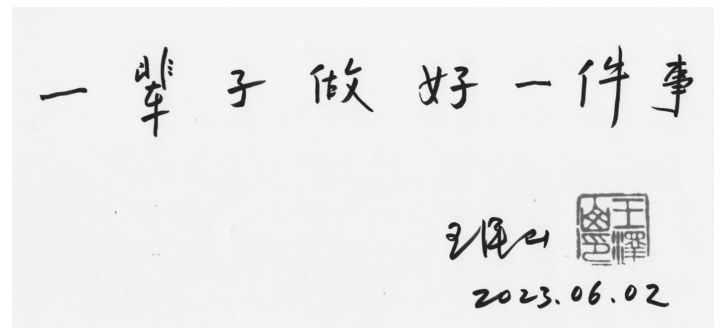 一辈子做好一件事
王泽山
王澤山印
2023.06.02